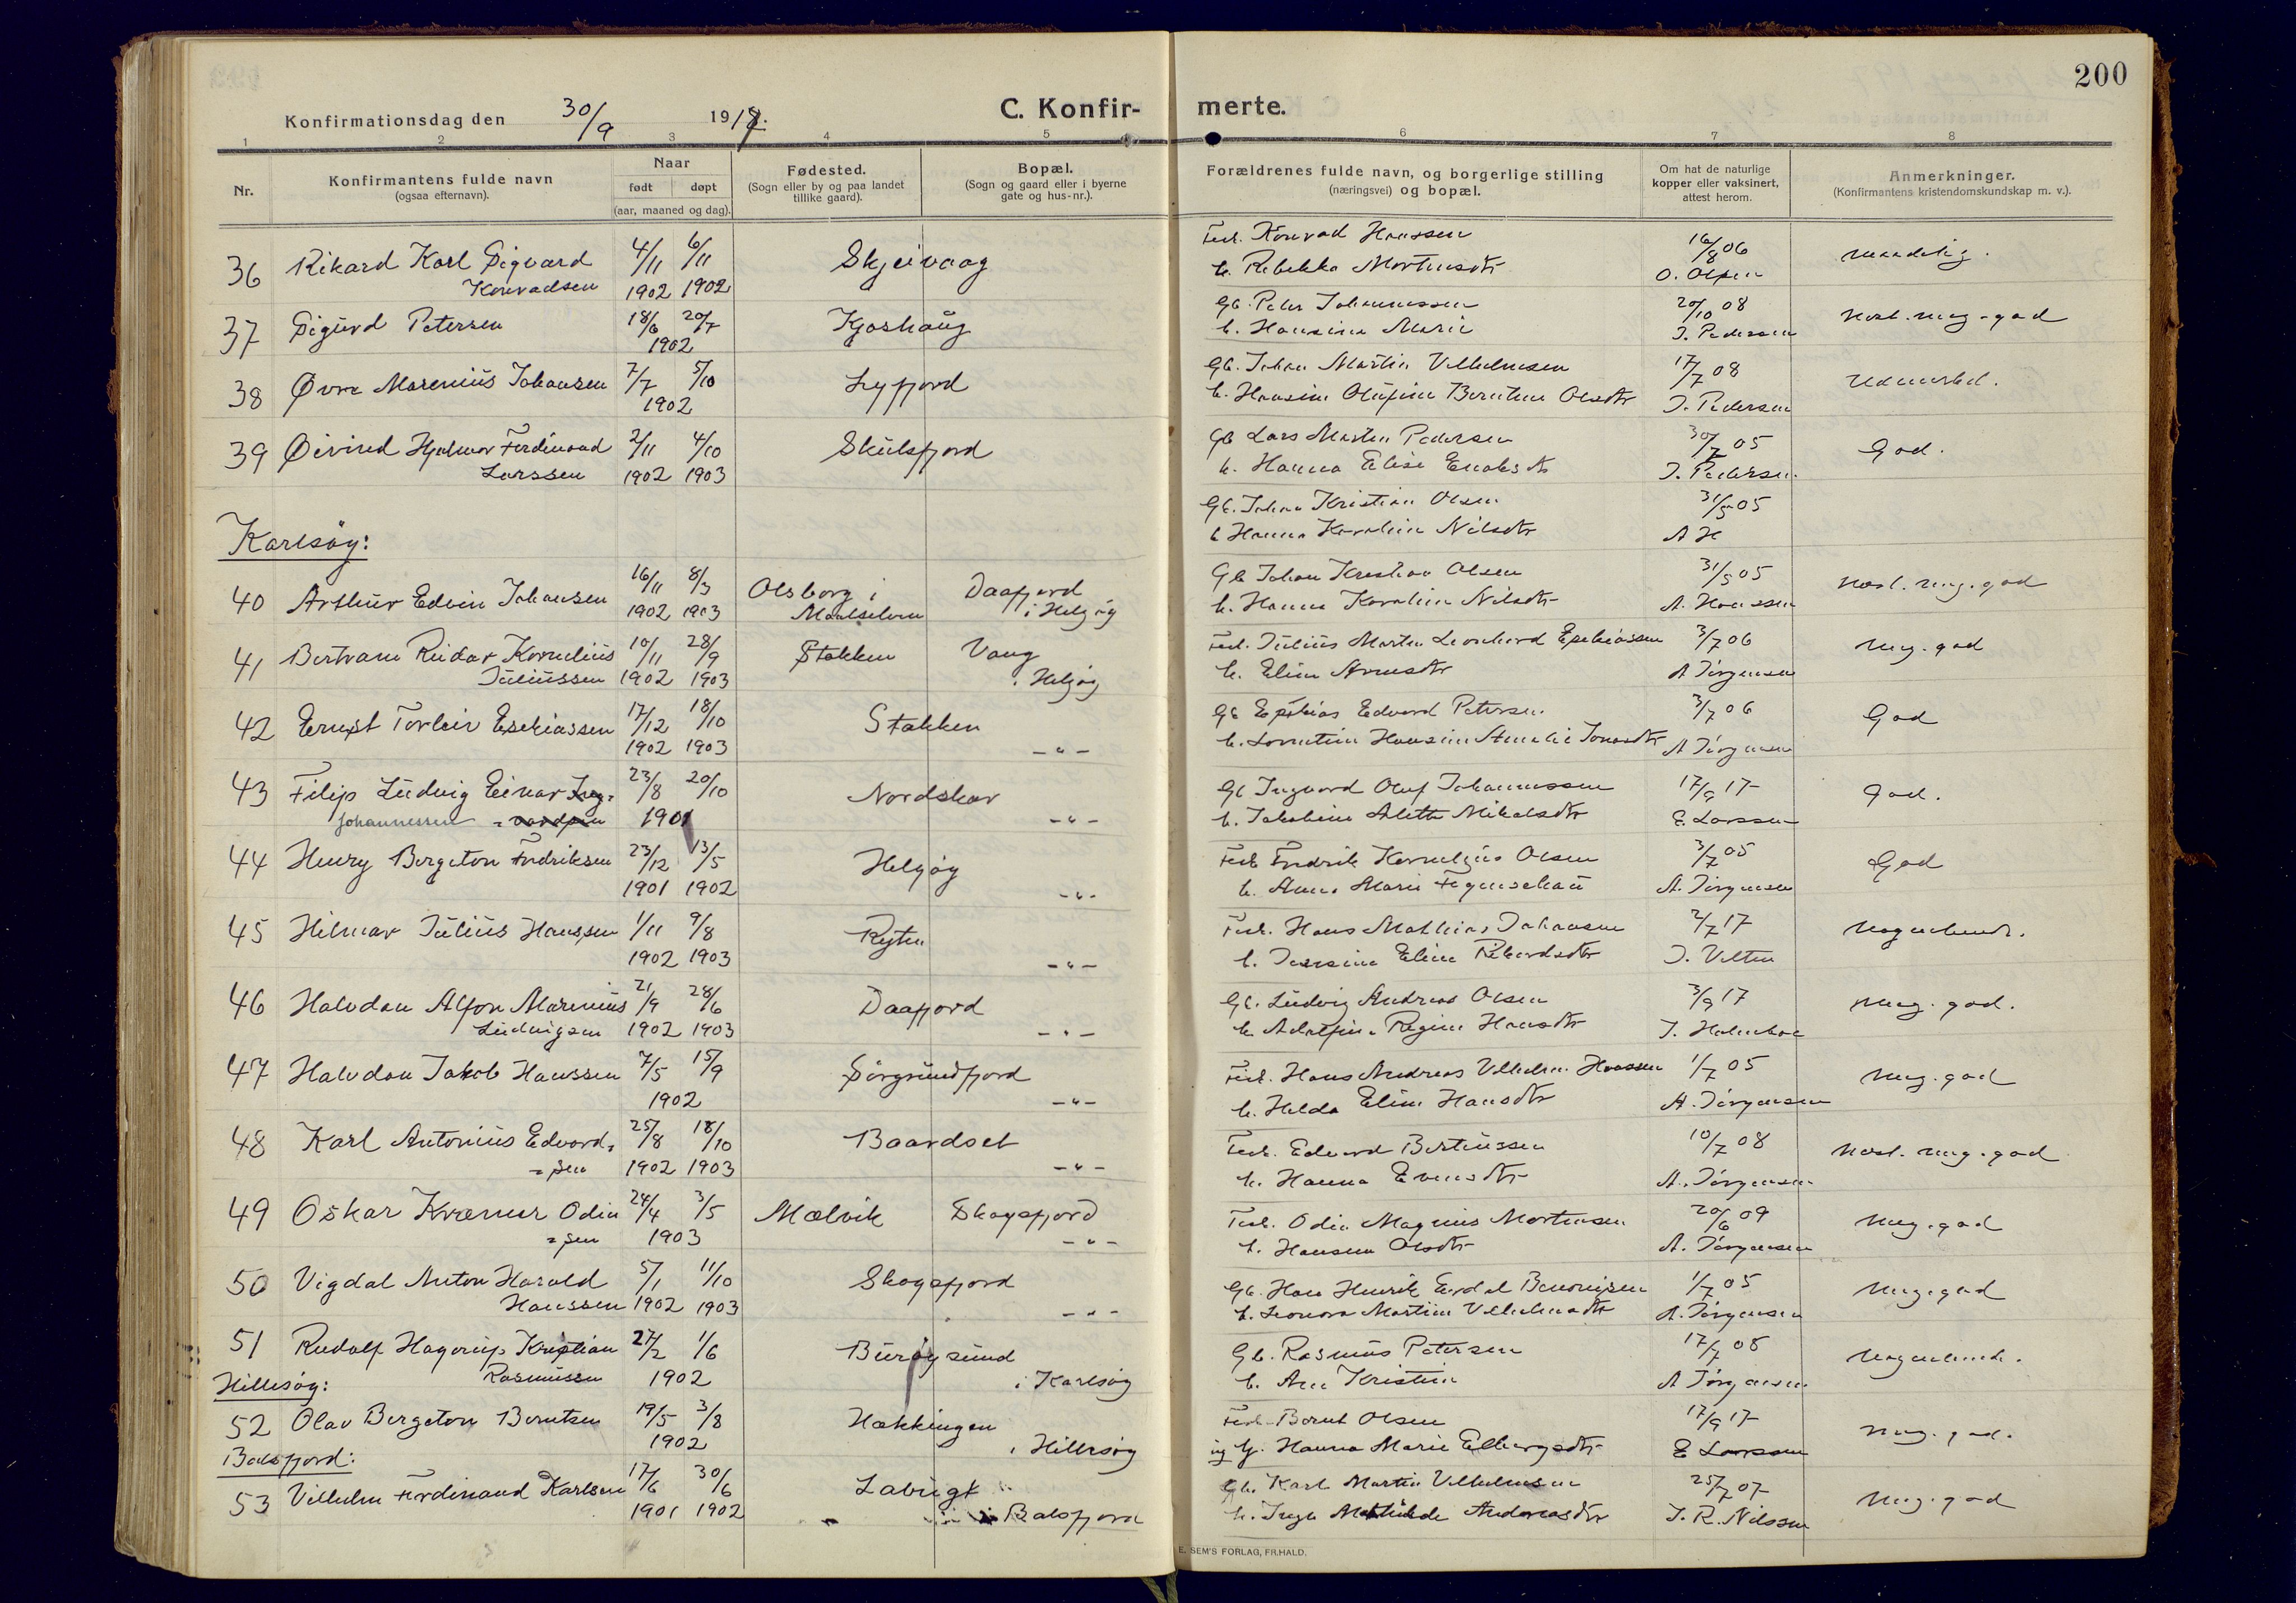 200
Konfirmationsdag den 30/9 1917.
C. Konfir-merte.
1 2 3 4 5 6 7 8
Nr.
Konfirmantens fulde navn
(ogsaa efternavn).
Naar
født døpt
(aar, maaned og dag).
Fødested.
(Sogn eller by og paa landet
tillike gaard).
Bopæl.
(Sogn og gaard eller i byerne
gate og hus-nr.).
Forældrenes fulde navn, og borgerlige stilling
(næringsvei) og bopæl.
Om hat de naturlige
kopper eller vaksinert,
attest herom.
Anmerkninger.
(Konfirmantens kristendomskundskap m. v.).
36 Rikard Karl Sigvard 4/11 6/11 Skjeivaag Fisk. Konrad Hanssen 16/8 06 maadelig.
Konradsen 1902 1902 h. Rebekka Mortensdtr O. Olsen
37 Sigurd Petersen 18/6 20/7 Kjoshaug Gb. Peter Johannessen 20/10 08 Næst. meg. god
1902 h. Hansine Marie J. Pedersen
38 Øvre Marenius Johansen 7/7 5/10 Lyfjord Gb. Johan Martin Vilhelmsen 17/7 08 Udmerket.
1902 h. Hansine Olufine Berntine Olsdtr J. Pedersen
39 Øivind Hjalmar Ferdinand 2/11 4/10 Skulsfjord Gb Lars Martin Pedersen 30/7 05 God.
Larssen 1902 1903 h. Hanna Elise Enoksdtr J. Pedersen.
Gb. Johan Kristian Olsen 31/5 05
Karlsøy: h Hanna Karoline Nilsdtr A H
40 Arthur Edvin Johansen 16/11 8/3 Olsborg i Daafjord Gb Johan Kristian Olsen 31/5 05 Næst. meg. god
1902 1903 Maalselven i Helgøy h. Hanna Karoline Nilsdtr A. Hanssen
41 Bertram Reidar Kornelius 10/11 28/9 Stakken Vaag Fisk. Julius Martin Leonhard Esekiassen 3/7 06 Meg. god
Juliussen 1902 1903 i Helgøy h. Eline Arnesdtr A Jørgensen
42 Ernst Torleiv Esekiassen 17/12 18/10 Stakken Gb Esekias Edvard Petersen 3/7 06 God
1902 1903 -"- h. Lorentine Hansine Amalie Jonasdtr A Jørgensen
43 Filip Ludvig Einar Ing= 23/8 20/10 Nordskar Gb Ingvard Oluf Johannessen 17/9 17 God.
Johannessen =vardsen 1901 -"- h. Jakobine Alette Mikalsdtr E. Larssen
44 Henry Bergeton Fredriksen 23/12 13/5 Helgøy Fisk Fredrik Kornelius Olsen 3/7 05 God
1901 1902 -"- h. Anna Marie Figenschau A. Jørgensen
45 Hilmar Julius Hanssen 1/11 9/8 Fisk. Hans Mathias Johansen 2/7 17 Nogenlunde.
1902 1903 -"- h. Elina Rikardsdtr
46 Halvdan Alfon Marenius 21/9 28/6 Daafjord Gb. Ludvig Andreas Olsen 3/9 17 Meg. god.
Ludvigsen 1902 1903 -"- h. Adolfine Regine Hansdtr J. Holmboe
47 Halvdan Jakob Hanssen 7/5 15/9 Sørgrundfjord Fisk. Hans Andreas Vilhelm Hanssen 1/7 05 Meg. god
1902 -"- h. Helda Eline Hansdtr A. Jørgensen
48 Karl Antonius Edvard= 25/8 18/10 Baardset Fisk. Edvard Bertinussen 10/7 08 Næst. meg. god
=sen 1902 1903 -"- h. Hanna Evensdtr A. Jørgensen
49 Oskar Kræmer Odin 24/4 3/5 Mælvik Skogsfjord Fisk. Odin Magnus Mortensen 20/6 09 Meg. god
=sen 1903 -"- h. Hansine Olsdtr A. Jørgensen
50 Vigdal Anton Harald 5/1 11/10 Skogsfjord Gb. Hans Henrik Benonisen 1/7 05 Meg. god
Hanssen 1902 1903 -"- h. Leonora Martine Vilhelmsdtr A. Jørgensen
51 Rudolf Hagerup Kristian 27/2 1/6 Burøysund Gb. Rasmus Petersen 17/7 08 Nogenlunde.
Hillesøy: Rasmussen 1902 i Karlsøy h. Ane Kristine A Jørgensen
52 Olav Bergeton Berntsen 19/5 3/8 Hækkingen Fisk. Bernt Olsen 17/9 17 Meg. god.
1902 i Hillesøy ug g. Hanna Marie Ellbergsdtr E Larssen
Balsfjord:
53 Vilhelm Ferdinand Karlsen 17/6 30/6 Labugt Gb. Karl Martin Vilhelmsen 25/7 07 Meg. god
1901 1902 i Balsfjord h. Inga Mathilde Andreasdtr J. R. Nilssen
E. SEM'S FORLAG, FR.HALD.